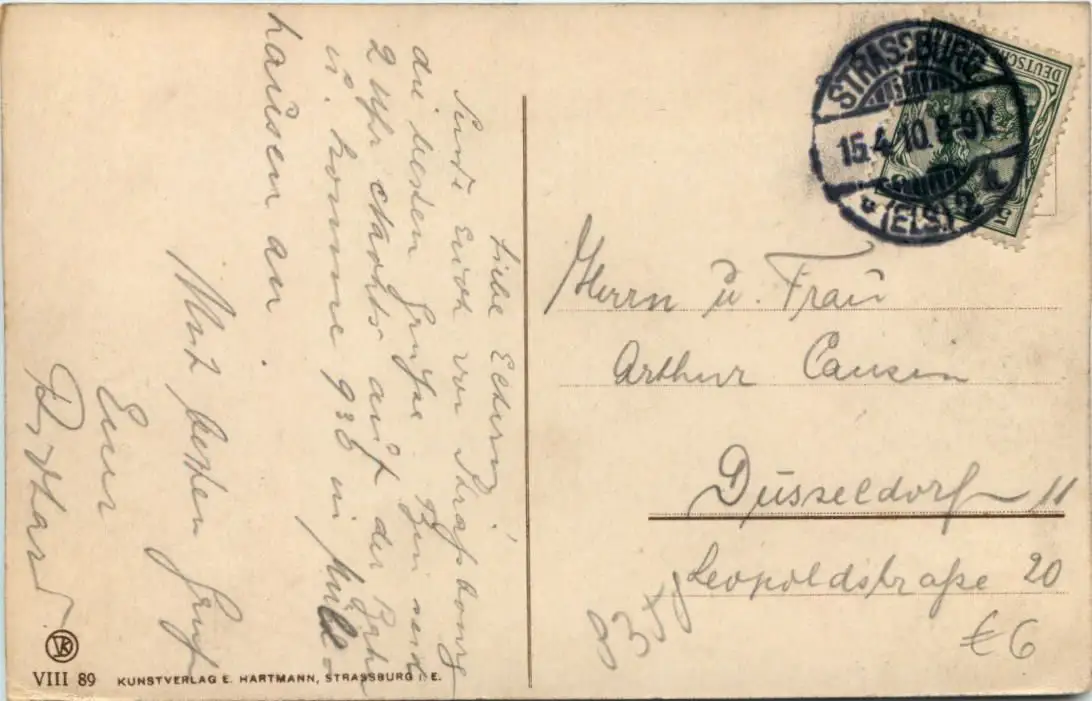 Liebe Eltern,
Sende Euch von Strassburg
die besten Grüsse. Bin seit
2 Uhr Nachts auf der Bahn
u. komme 9 35 in Mühl-
hausen an
Mit besten Gruß
Euer
Richard
STRASSBURG
15.4.10. 8-9V.
(ELS.) 2
DEUTSCHE
5
Herrn u. Frau
Arthur
Düsseldorf 11
Leopoldstraße 20
€ 6
VK
VIII 89 KUNSTVERLAG E. HARTMANN, STRASSBURG I. E.